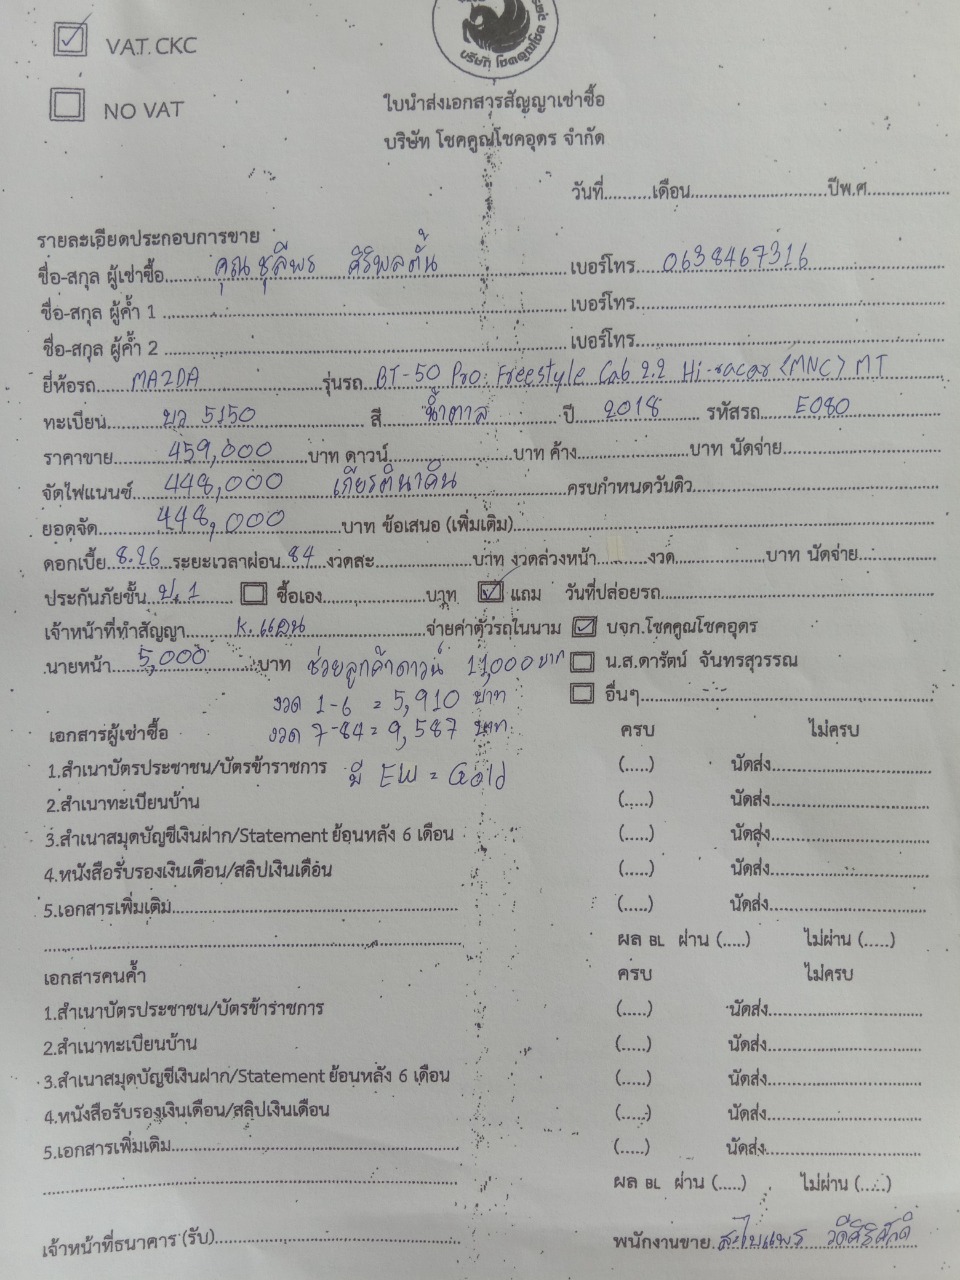 ☑ VAT.CKC
☐ NO VAT
บริษัท โชคคูณโชค
ใบนำส่งเอกสารสัญญาเช่าซื้อ
บริษัท โชคคูณโชคอุดร จำกัด
วันที่.........เดือน..............................ปีพ.ศ..................
รายละเอียดประกอบการขาย
ชื่อ-สกุล ผู้เช่าซื้อ คุณ ชุลีพร ศิริพลตั้น เบอร์โทร 0638467316
ชื่อ-สกุล ผู้ค้ำ 1 .................... เบอร์โทร....................
ชื่อ-สกุล ผู้ค้ำ 2 .................... เบอร์โทร....................
ยี่ห้อรถ MAZDA รุ่นรถ BT-50 Pro: Freestyle Cab 2.2 Hi-racer <MNC> MT
ทะเบียน บว 5150 สี น้ำตาล ปี 2018 รหัสรถ E080
ราคาขาย 459,000 บาท ดาวน์....................บาท ค้าง....................บาท นัดจ่าย....................
จัดไฟแนนซ์ 448,000 เกียรตินาคิน ครบกำหนดวันดิว....................
ยอดจัด 448,000 บาท ข้อเสนอ (เพิ่มเติม)....................
ดอกเบี้ย 8.26 ระยะเวลาผ่อน 84 งวดสะ....................บาท งวดล่วงหน้า..........งวด....................บาท นัดจ่าย....................
ประกันภัยชั้น ป.1 ☐ ซื้อเอง....................บาท ☑ แถม วันที่ปล่อยรถ....................
เจ้าหน้าที่ทำสัญญา K.แคน จ่ายค่าตัวรถในนาม ☑ บจก.โชคคูณโชคอุดร
นายหน้า 5,000 บาท ช่วยลูกค้าดาวน์ 11,000 บาท ☐ น.ส.ดารัตน์ จันทรสุวรรณ
งวด 1-6 = 5,910 บาท ☐ อื่นๆ....................
เอกสารผู้เช่าซื้อ งวด 7-84 = 9,587 บาท ครบ ไม่ครบ
1.สำเนาบัตรประชาชน/บัตรข้าราชการ มี EW = Gold (.....) นัดส่ง....................
2.สำเนาทะเบียนบ้าน (.....) นัดส่ง....................
3.สำเนาสมุดบัญชีเงินฝาก/Statement ย้อนหลัง 6 เดือน (.....) นัดส่ง....................
4.หนังสือรับรองเงินเดือน/สลิปเงินเดือน (.....) นัดส่ง....................
5.เอกสารเพิ่มเติม.................... (.....) นัดส่ง....................
.................... ผล BL ผ่าน (.....) ไม่ผ่าน (.....)
เอกสารคนค้ำ ครบ ไม่ครบ
1.สำเนาบัตรประชาชน/บัตรข้าราชการ (.....) นัดส่ง....................
2.สำเนาทะเบียนบ้าน (.....) นัดส่ง....................
3.สำเนาสมุดบัญชีเงินฝาก/Statement ย้อนหลัง 6 เดือน (.....) นัดส่ง....................
4.หนังสือรับรองเงินเดือน/สลิปเงินเดือน (.....) นัดส่ง....................
5.เอกสารเพิ่มเติม.................... (.....) นัดส่ง....................
.................... ผล BL ผ่าน (.....) ไม่ผ่าน (.....)
เจ้าหน้าที่ธนาคาร (รับ).................... พนักงานขาย สะไบแพร วดีศิริศักดิ์